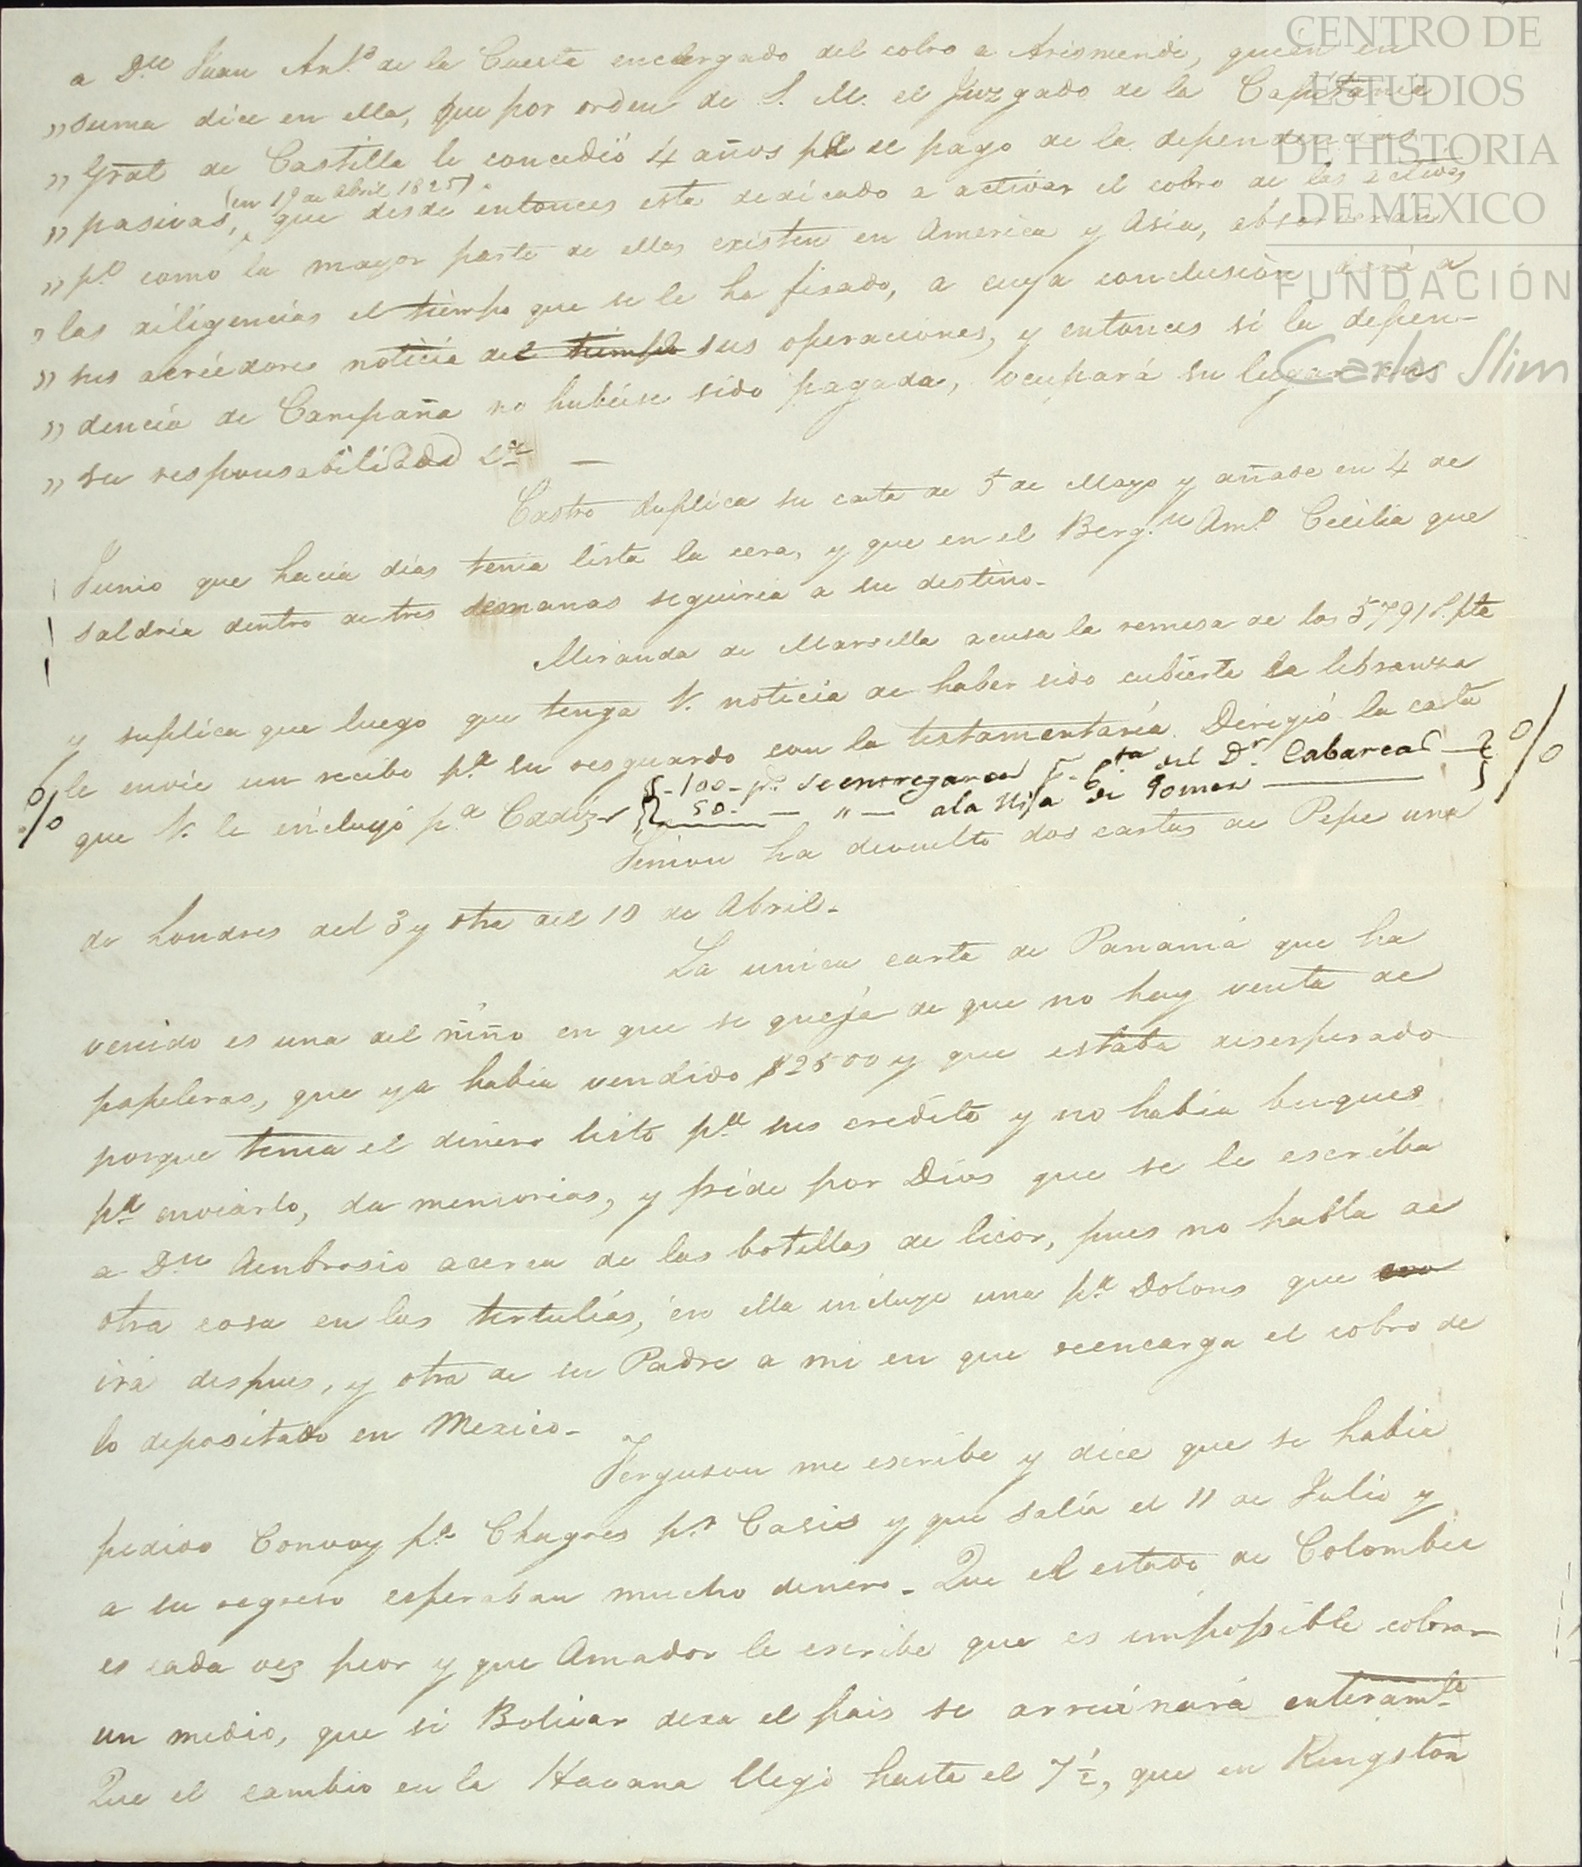 CENTRO DE
ESTUDIOS
DE HISTORIA
DE MEXICO
FUNDACIÓN
Carlos Slim
a Dn. Juan Anto. de la Cuesta encargado del cobro a Arismendi, quien en
" suma dice en ella, que por orden de S. M. el Juzgado de la Capitania
" Gral de Castilla le concedió 4 años pa. el pago de la dependencias
" pasivas, (en 19 de Abril 1825) que desde entonces esta dedicado a activar el cobro de las activas
" po. como la mayor parte de ellas existen en America y Asia, absorberan
" las diligencias el tiempo que se le ha fixado, a cuya conclusión dará a
" sus acreedores noticia del tiempo sus operaciones, y entonces si la depen-
" dencia de Campaña no hubiese sido pagada, ocupará su lugar en
" su responsabilidad &a. —
Castro duplica su carta de 5 de Mayo y añade en 4 de
Junio que hacia dias tenia lista la cera, y que en el Bergn. Amo. Cecilia que
saldria dentro de tres semanas seguiria a su destino.
Miranda de Marsella acusa la remesa de los 5791 P. fte
y suplica que luego que tenga V. noticia de haber sido cubierta la libranza
le envie un recibo pa. su resguardo con la testamentaria. Dirigió la carta
que V. le incluyó pa. Cadiz.
100 - ps. se entregaron del Dr. Cabarcas
50 - " - a la Hija de Gomes
Simon ha devuelto dos cartas de Pepe una
de Londres del 3 y otra del 10 de Abril.
La unica carta de Panamá que ha
venido es una del niño en que se queja de que no hay venta de
papeleras, que ya habia vendido $2500 y que estaba desesperado
porque tenia el dinero listo pa. sus credito y no habia buques
pa. enviarlo, da memorias, y pide por Dios que se le escriba
a Dn. Ambrosio acerca de las botellas de licor, pues no habla de
otra cosa en las tertulias, en ella incluye una pa. Dolores que
irá despues, y otra de su Padre a mi en que reencarga el cobro de
lo depositado en Mexico.
Ferguson me escribe y dice que se habia
pedido Convoy pa. Chagres pr. Casis y que salia el 11 de Julio y
a su regreso esperaban mucho dinero. Que el estado de Colombia
es cada vez peor y que Amador le escribe que es impossible cobrar
un medio, que si Bolivar dexa el pais se arruinará enteramte.
Que el cambio en la Havana llegó hasta el 7½, que en Kingston